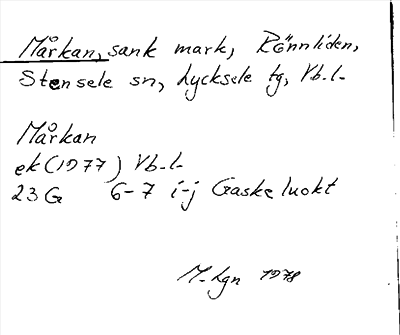 Mårkan, sank mark, Rönnliden,
Stensele sn, Lycksele tg, Vb.l.
Mårkan
ek (1977) Vb.l.
23 G 6-7 i-j Gaskeluokt
M. Lgn 1978